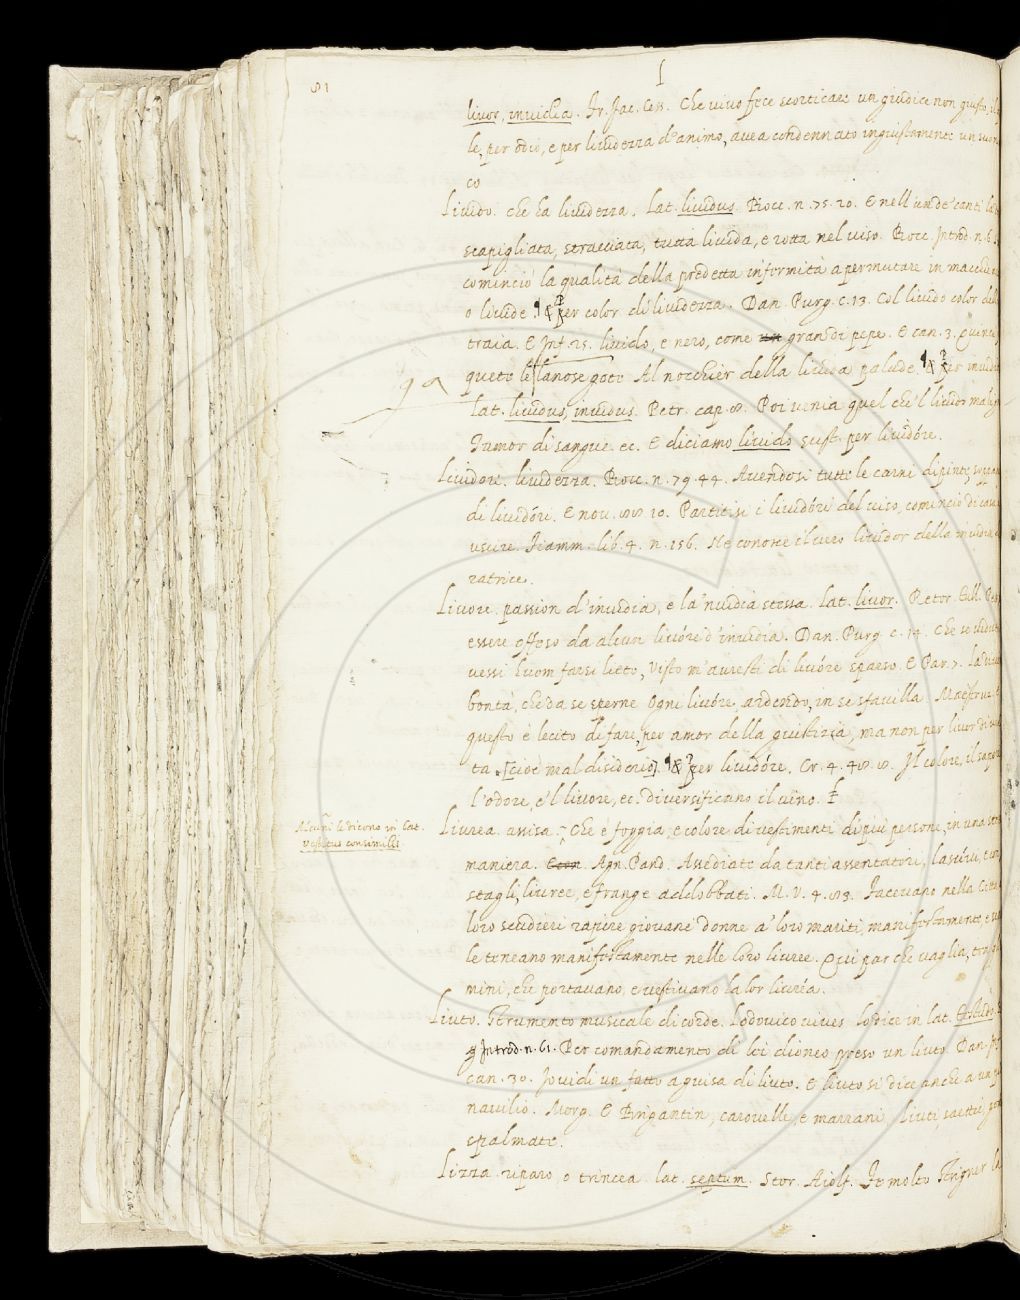 81
L
livor, invidia. Fr. Jac. Ces. Che vivo fece scorticare un giudice non giusto, il
le, per odio, e per lividezza d'animo, avea condennato ingiustamente un suo
co
Livido. che ha lividezza. Lat. lividus. Bocc. n. 75. 20. E nell'
scapigliata, stracciata, tutta livida, e rotta nel viso. Bocc. Introd. n. 6.
cominciò la qualità della predetta infermità a permutare in macchie
o livide. ¶ & per color di lividezza. Dan. Purg. c. 13. Col livido color della
traia. E Inf. 25. livido, e nero, come un gran di pepe. E can. 3. Quinci
quete le lanose gote Al nocchier della livida palude. ¶ & per invidio
Lat. lividus, invidus. Petr. cap. 8. Poi venia quel che'l livido maligno
Tumor di sangue ec. E diciamo livido sust. per lividóre.
Lividore. lividezza. Bocc. n. 79. 44. Avendosi tutte le carni dipinte, soppa
di lividóri. E nov. 88 10. Partitisi i lividóri del viso, cominciò di casa
uscire. Fiamm. lib. 4. n. 156. Ne conosce il vero lividor della
ratrice.
Livore. passion d'invidia, e la'nvidia stessa. Lat. livor. Retor. Tull.
essere offeso da alcun livóre d'invidia. Dan. Purg. c. 14. Che se veduto
vessi huom farsi lieto, Visto m'avresti di livóre sparso. E Par. 7. La divina
bontà, che da se sperne Ogni livóre, ardendo, in se sfavilla. Maestruz.
questo è lecito di fare, per amor della giustizia, ma non per livor di
ta. [cioè mal disiderio]. ¶ & per lividóre. Cr. 4. 48. 8. Il colore, il sapore
l'odore, e'l livore, ec. diversificano il vino.
Alcuni la dicono in Lat.
Vestitus consimilis.
Livrea. assisa. Che è foggia, e colore di vestimenti di più persone, in una stessa
maniera. Agn. Pand. Assediate da tanti assentatori, lascivi,
stagli, livree, e frange addobbati. M. V. 4. 83. Facevano nella Città
loro scudieri rapire giovani donne a' loro mariti, manifestamente, e
le teneano manifestamente nelle loro livree. Qui par che vaglia, tra gli
mini, che portavano, e vestivano la lor livréa.
Liuto. Strumento musicale di corde. Lodovico vives lo dice in lat. testudo.
g Introd. n. 61. Per comandamento di lei dioneo preso un liuto. Dan. Inf.
can. 30. Io vidi un fatto a guisa di liuto. E liuto si dice anche a un
navilio. Morg. E Brigantin, carovelle, e marrani, liuti, saettie,
spalmate.
Lizza. riparo, o trincea. lat. septum. Stor. Aiolf.